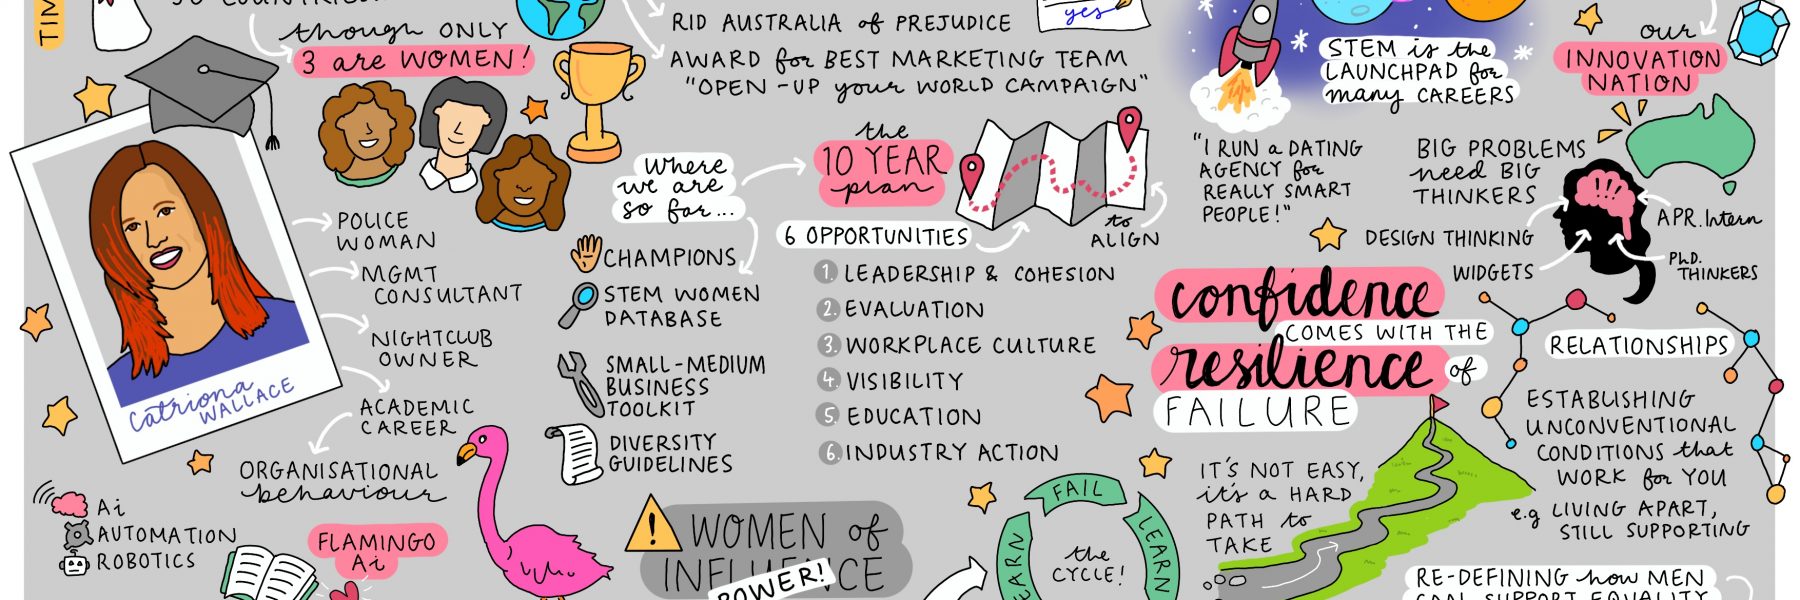 TIM
though ONLY
3 are WOMEN!
Catriona
WALLACE
POLICE
WOMAN
MGMT
CONSULTANT
NIGHTCLUB
OWNER
ACADEMIC
CAREER
ORGANISATIONAL
behaviour
Ai
AUTOMATION
ROBOTICS
FLAMINGO
Ai
RID AUSTRALIA of PREJUDICE
AWARD for BEST MARKETING TEAM
"OPEN-UP your WORLD CAMPAIGN"
yes
where
we are
so far...
CHAMPIONS
STEM WOMEN
DATABASE
SMALL-MEDIUM
BUSINESS
TOOLKIT
DIVERSITY
GUIDELINES
the
10 YEAR
plan
to
ALIGN
6 OPPORTUNITIES
1. LEADERSHIP & COHESION
2. EVALUATION
3. WORKPLACE CULTURE
4. VISIBILITY
5. EDUCATION
6. INDUSTRY ACTION
! WOMEN of
INFLUENCE
POWER!
FAIL
LEARN
EARN
the
CYCLE!
STEM is the
LAUNCHPAD for
many CAREERS
"I RUN a DATING
AGENCY for
REALLY SMART
PEOPLE!"
our
INNOVATION
NATION
BIG PROBLEMS
need BIG
THINKERS
!!!
DESIGN THINKING
WIDGETS
APR. Intern
PhD.
THINKERS
confidence
COMES WITH THE
resilience of
FAILURE
IT'S NOT EASY,
it's a HARD
PATH to
TAKE
RELATIONSHIPS
ESTABLISHING
UNCONVENTIONAL
CONDITIONS that
WORK for YOU
e.g LIVING APART,
STILL SUPPORTING
RE-DEFINING how MEN
CAN SUPPORT EQUALITY